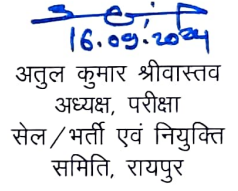 16.09.2024
अतुल कुमार श्रीवास्तव
अध्यक्ष, परीक्षा
सेल/भर्ती एवं नियुक्ति
समिति, रायपुर